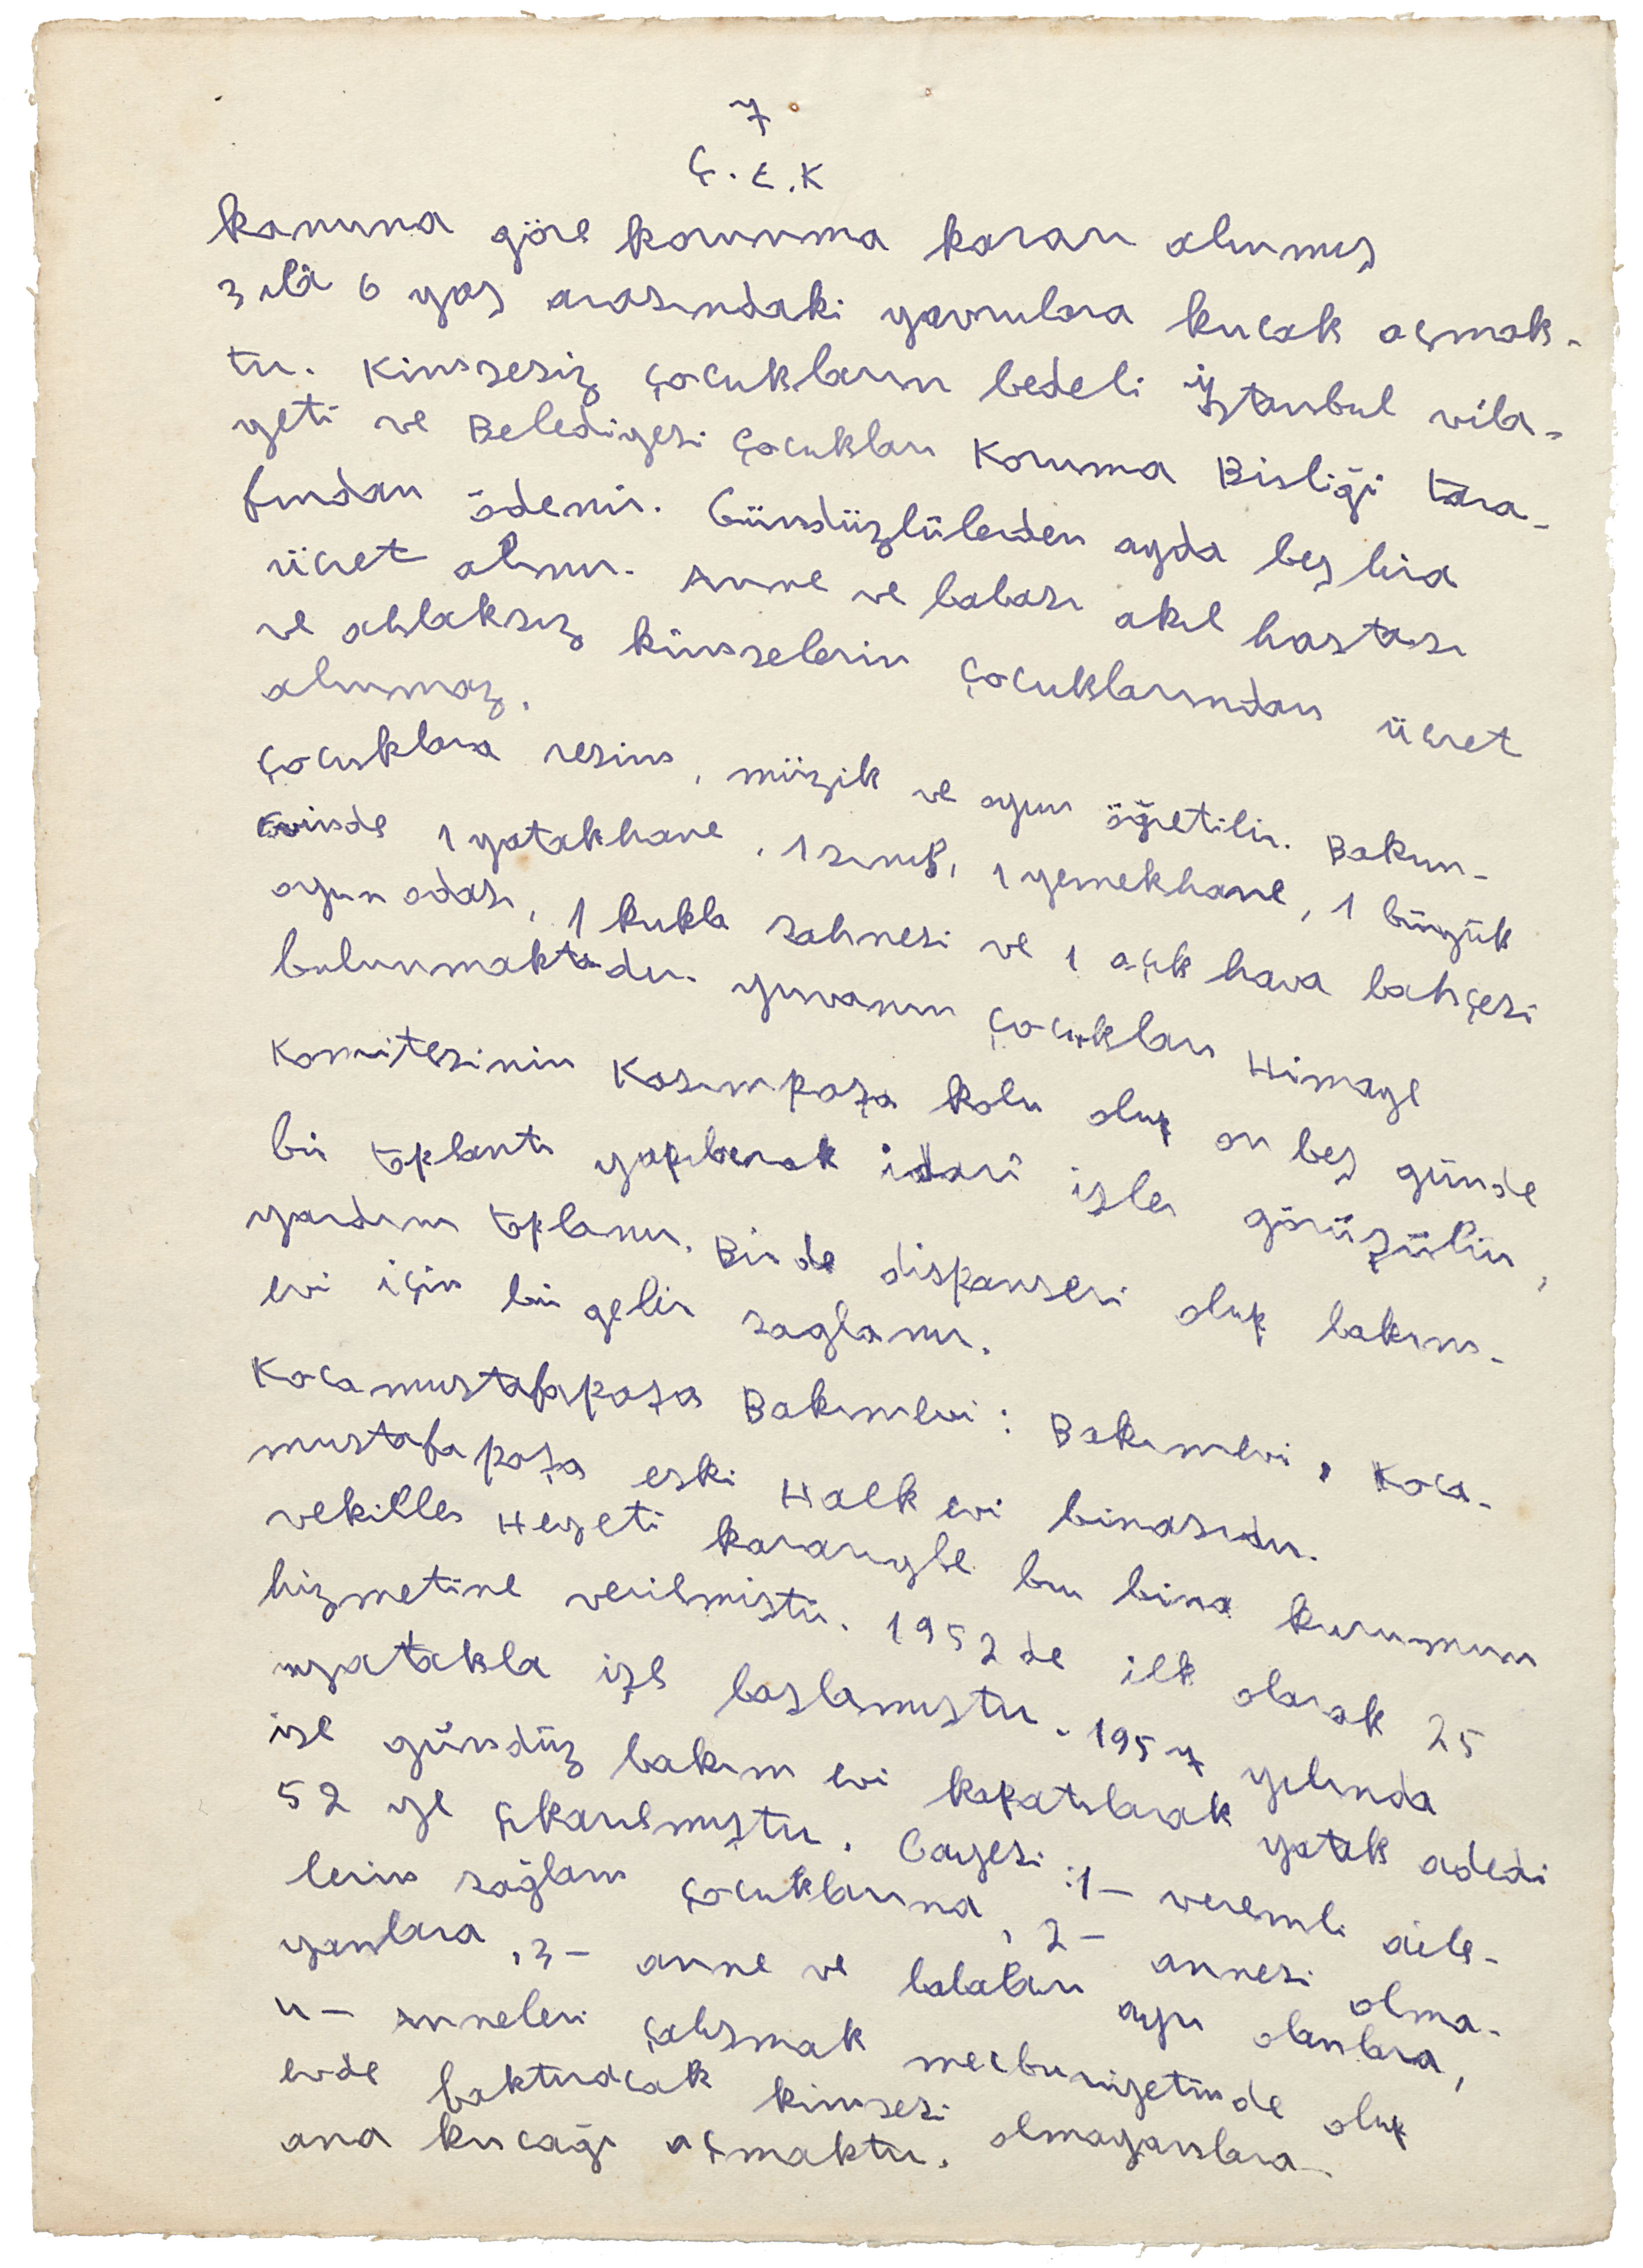 7
Ç. E. K
kanuna göre korunma kararı alınmış
3 ilâ 6 yaş arasındaki yavrulara kucak açmak-
tır. Kimsesiz çocukların bedeli İstanbul vilâ-
yeti ve Belediyesi Çocukları Koruma Birliği tara-
fından ödenir. Gündüzlülerden ayda beş lira
ücret alınır. Anne ve babası akıl hastası
ve ahlaksız kimselerin çocuklarından ücret
alınmaz.
Çocuklara resim, müzik ve oyun öğretilir. Bakım-
evinde 1 yatakhane, 1 sınıf, 1 yemekhane, 1 büyük
oyun odası, 1 kukla sahnesi ve 1 açık hava bahçesi
bulunmaktadır. Yuvanın Çocukları Himaye
Komitesinin Kasımpaşa kolu olup on beş günde
bir toplantı yapılarak idarî işler görüşülür,
yardım toplanır. Bir de dispanseri olup bakım-
evi için bir gelir saglanır.
Kocamustafapaşa Bakımevi: Bakımevi, Koca-
mustafapaşa eski Halkevi binasıdır.
Vekiller Heyeti kararıyle bu bina kurumun
hizmetine verilmiştir. 1952 de ilk olarak 25
yatakla işe başlamıştır. 1957 yılında
ise gündüz bakım evi kapatılarak yatak adedi
52 ye çıkarılmıştır. Gayesi: 1- veremli aile-
lerin sağlam çocuklarına, 2- annesi olma-
yanlara, 3- anne ve babaları ayrı olanlara,
4- Anneleri çalışmak mecburiyetinde olup
evde baktıracak kimsesi olmayanlara
ana kucağı açmaktır.